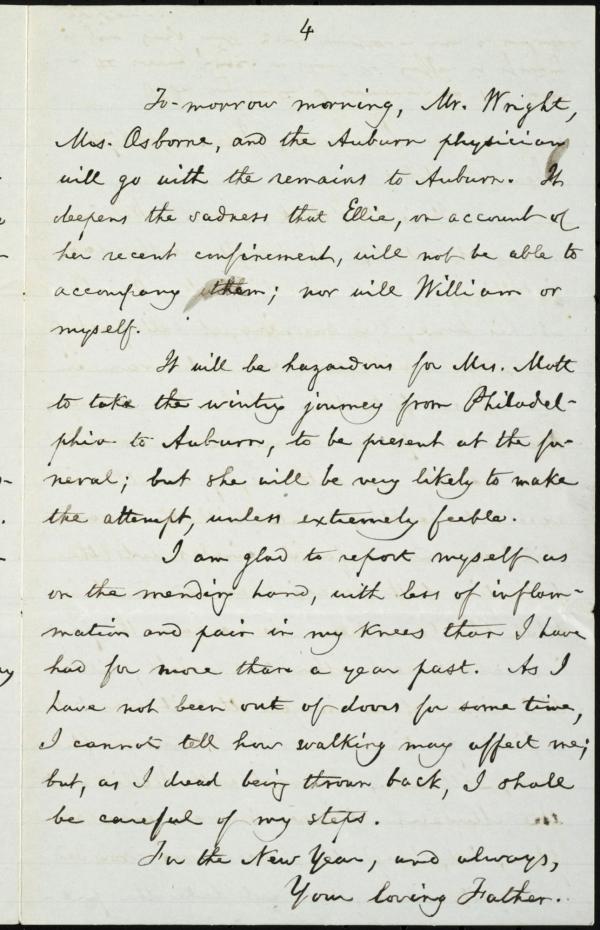 4
To-morrow morning, Mr. Wright,
Mrs. Osborne, and the Auburn physician
will go with the remains to Auburn. It
deepens the sadness that Ellie, on account of
her recent confinement, will not be able to
accompany them; nor will William or
myself.
It will be hazardous for Mrs. Mott
to take the wintry journey from Philadel-
phia to Auburn, to be present at the fu-
neral; but she will be very likely to make
the attempt, unless extremely feeble.
I am glad to report myself as
on the mending hand, with less of inflam-
mation and pain in my knees than I have
had for more than a year past. As I
have not been out of doors for some time,
I cannot tell how walking may affect me;
but, as I dread being thrown back, I shall
be careful of my steps.
For the New Year, and always,
Your loving Father.